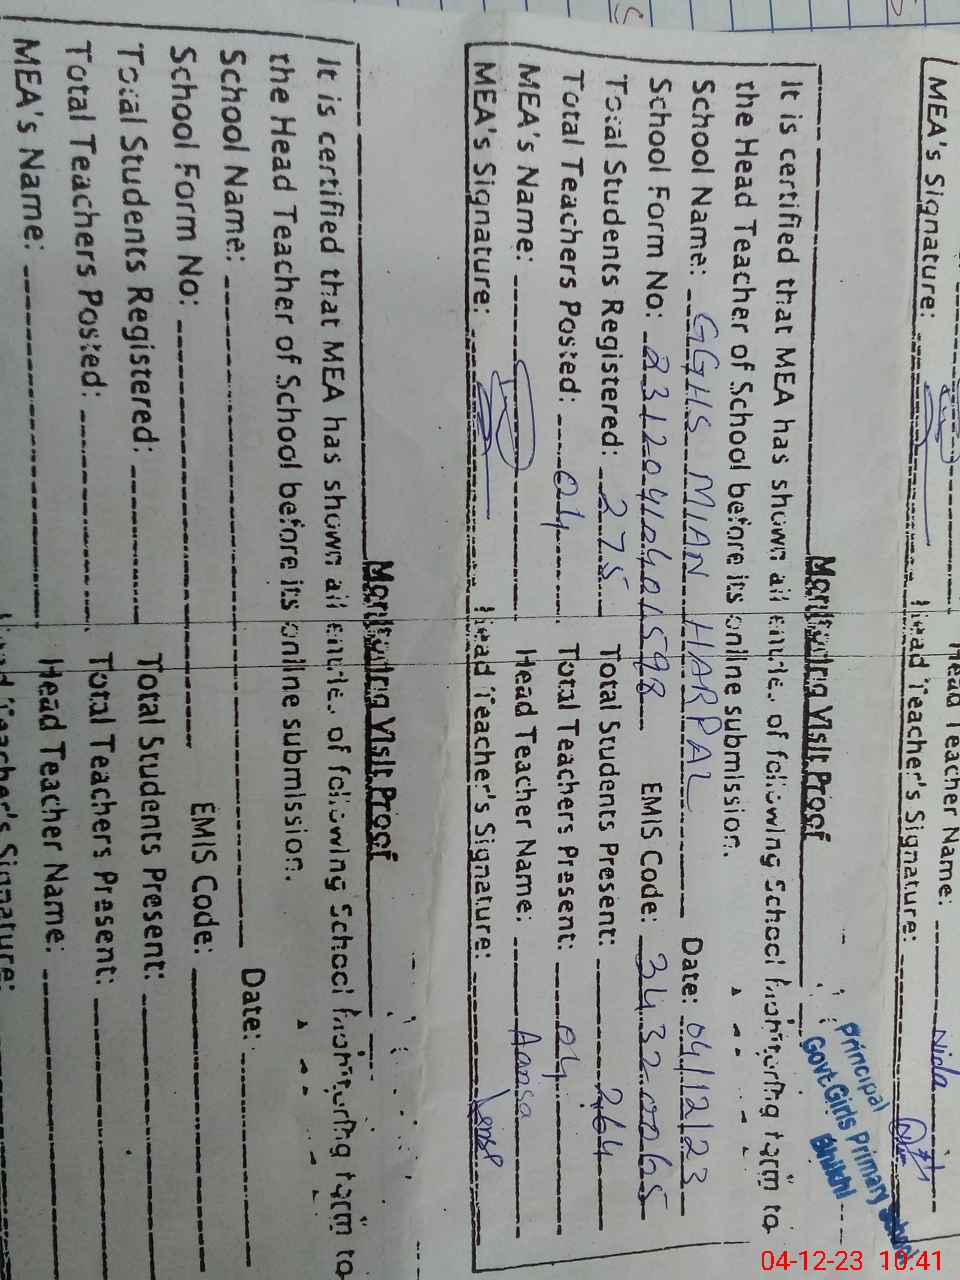 MEA's Signature:
Head Teacher Name: Nida
Head Teacher's Signature:
Principal
Govt Girls Primary School
Bhikhi
Monitoring Visit Proof
It is certified that MEA has shown all entries of following School monitoring form to
the Head Teacher of School before its online submission.
School Name: GGHS MIAN HARPAL Date: 04/12/23
School Form No: 23120410401598 EMIS Code: 34320065
Total Students Registered: 275 Total Students Present: 264
Total Teachers Posted: 04 Total Teachers Present: 04
MEA's Name: Head Teacher Name: Aansa
MEA's Signature: Head Teacher's Signature:
Monitoring Visit Proof
It is certified that MEA has shown all entries of following School monitoring form to
the Head Teacher of School before its online submission.
School Name: Date:
School Form No: EMIS Code:
Total Students Registered: Total Students Present:
Total Teachers Posted: Total Teachers Present:
MEA's Name: Head Teacher Name:
Head Teacher's Signature:
04-12-23 10:41